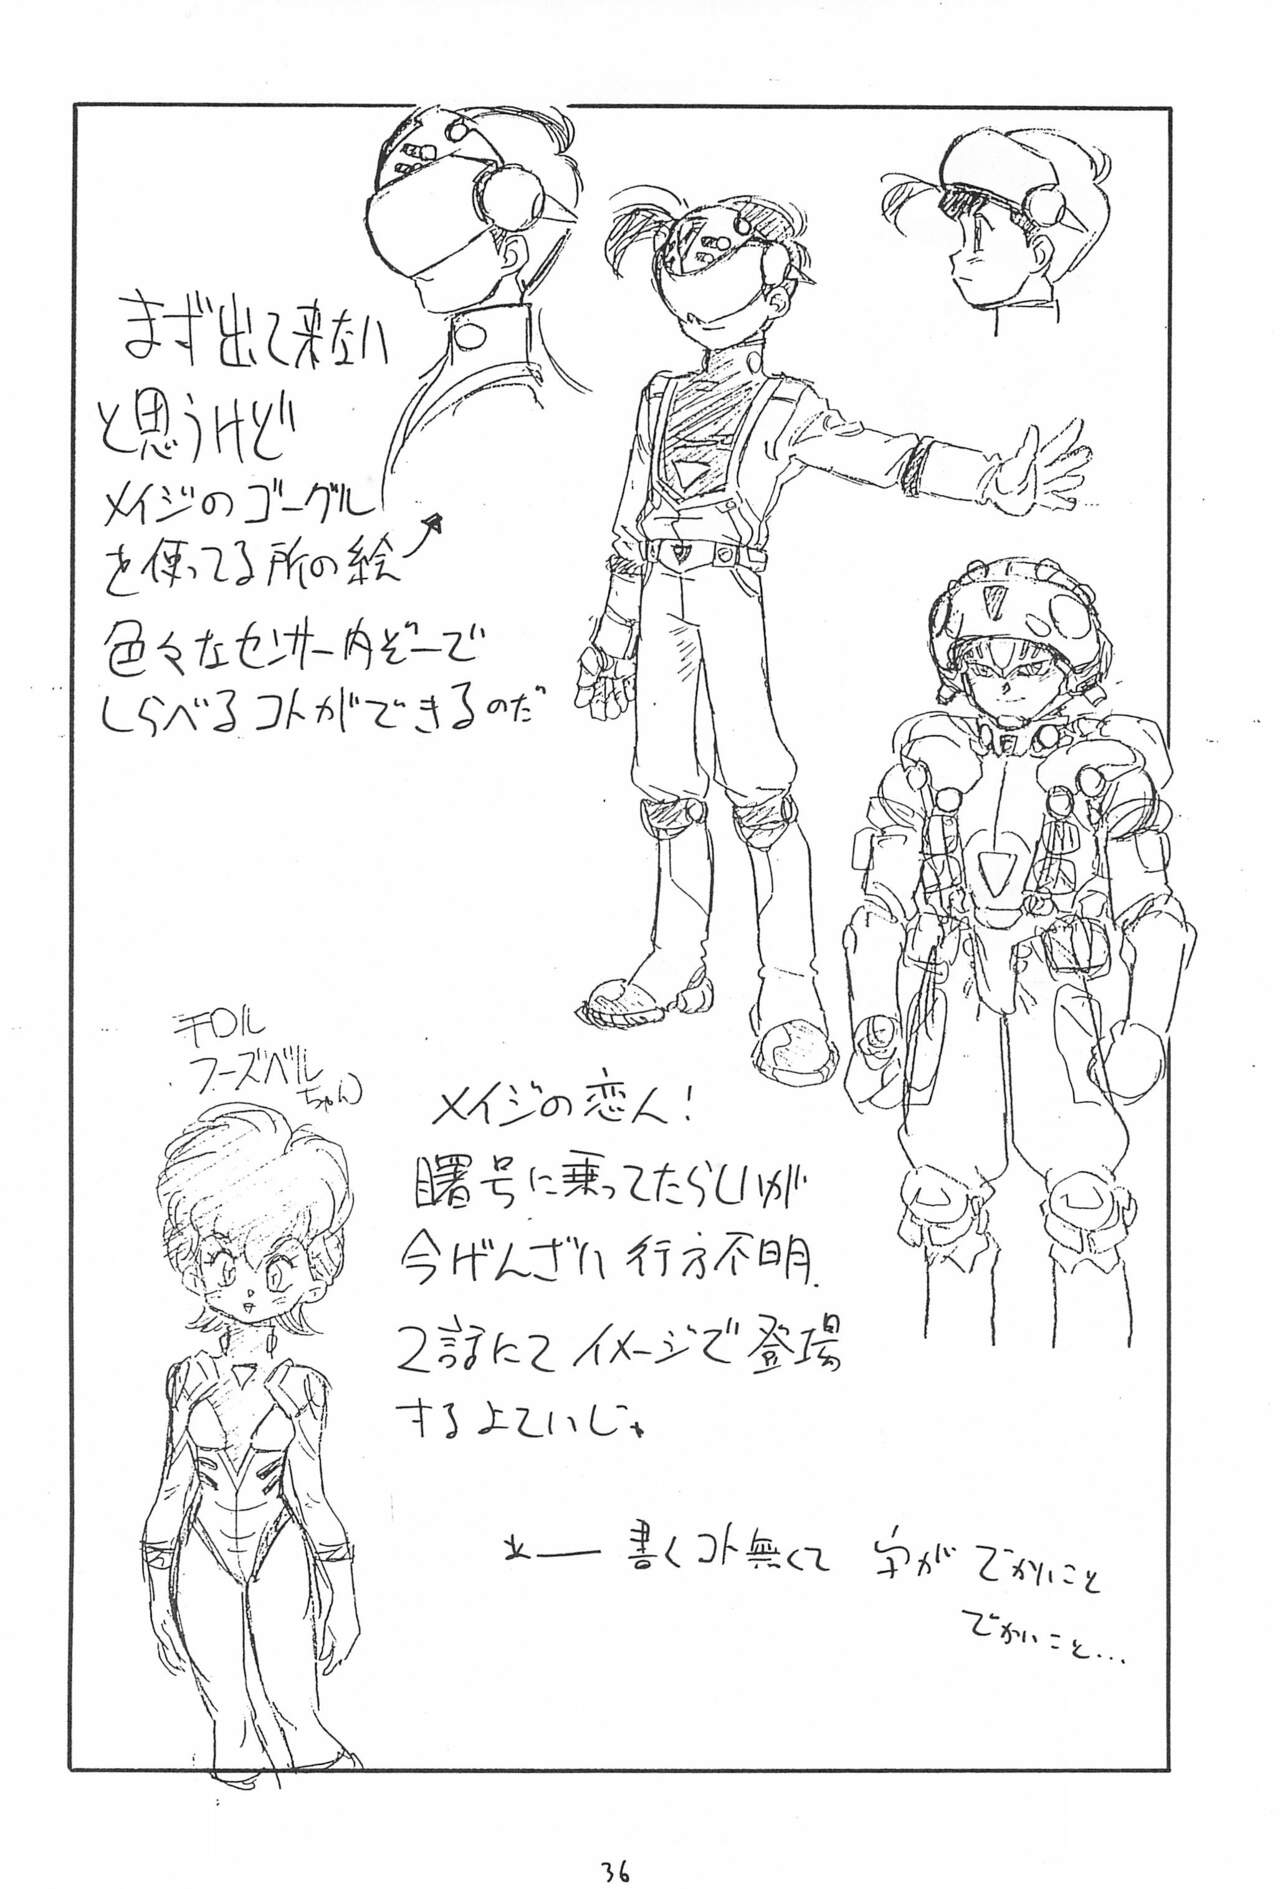 まず出て来ない
と思うけど
メイジのゴーグル
を使ってる所の絵
色々なセンサー内ぞーで
しらべるコトができるのだ
チロル
フーズベル
ちゃん
メイジの恋人!
曙号に乗ってたらしいが
今げんざい行方不明.
2話にてイメージで登場
するよていじゃ
*― 書くコト無くて 字がでかいこと
でかいこと...
36